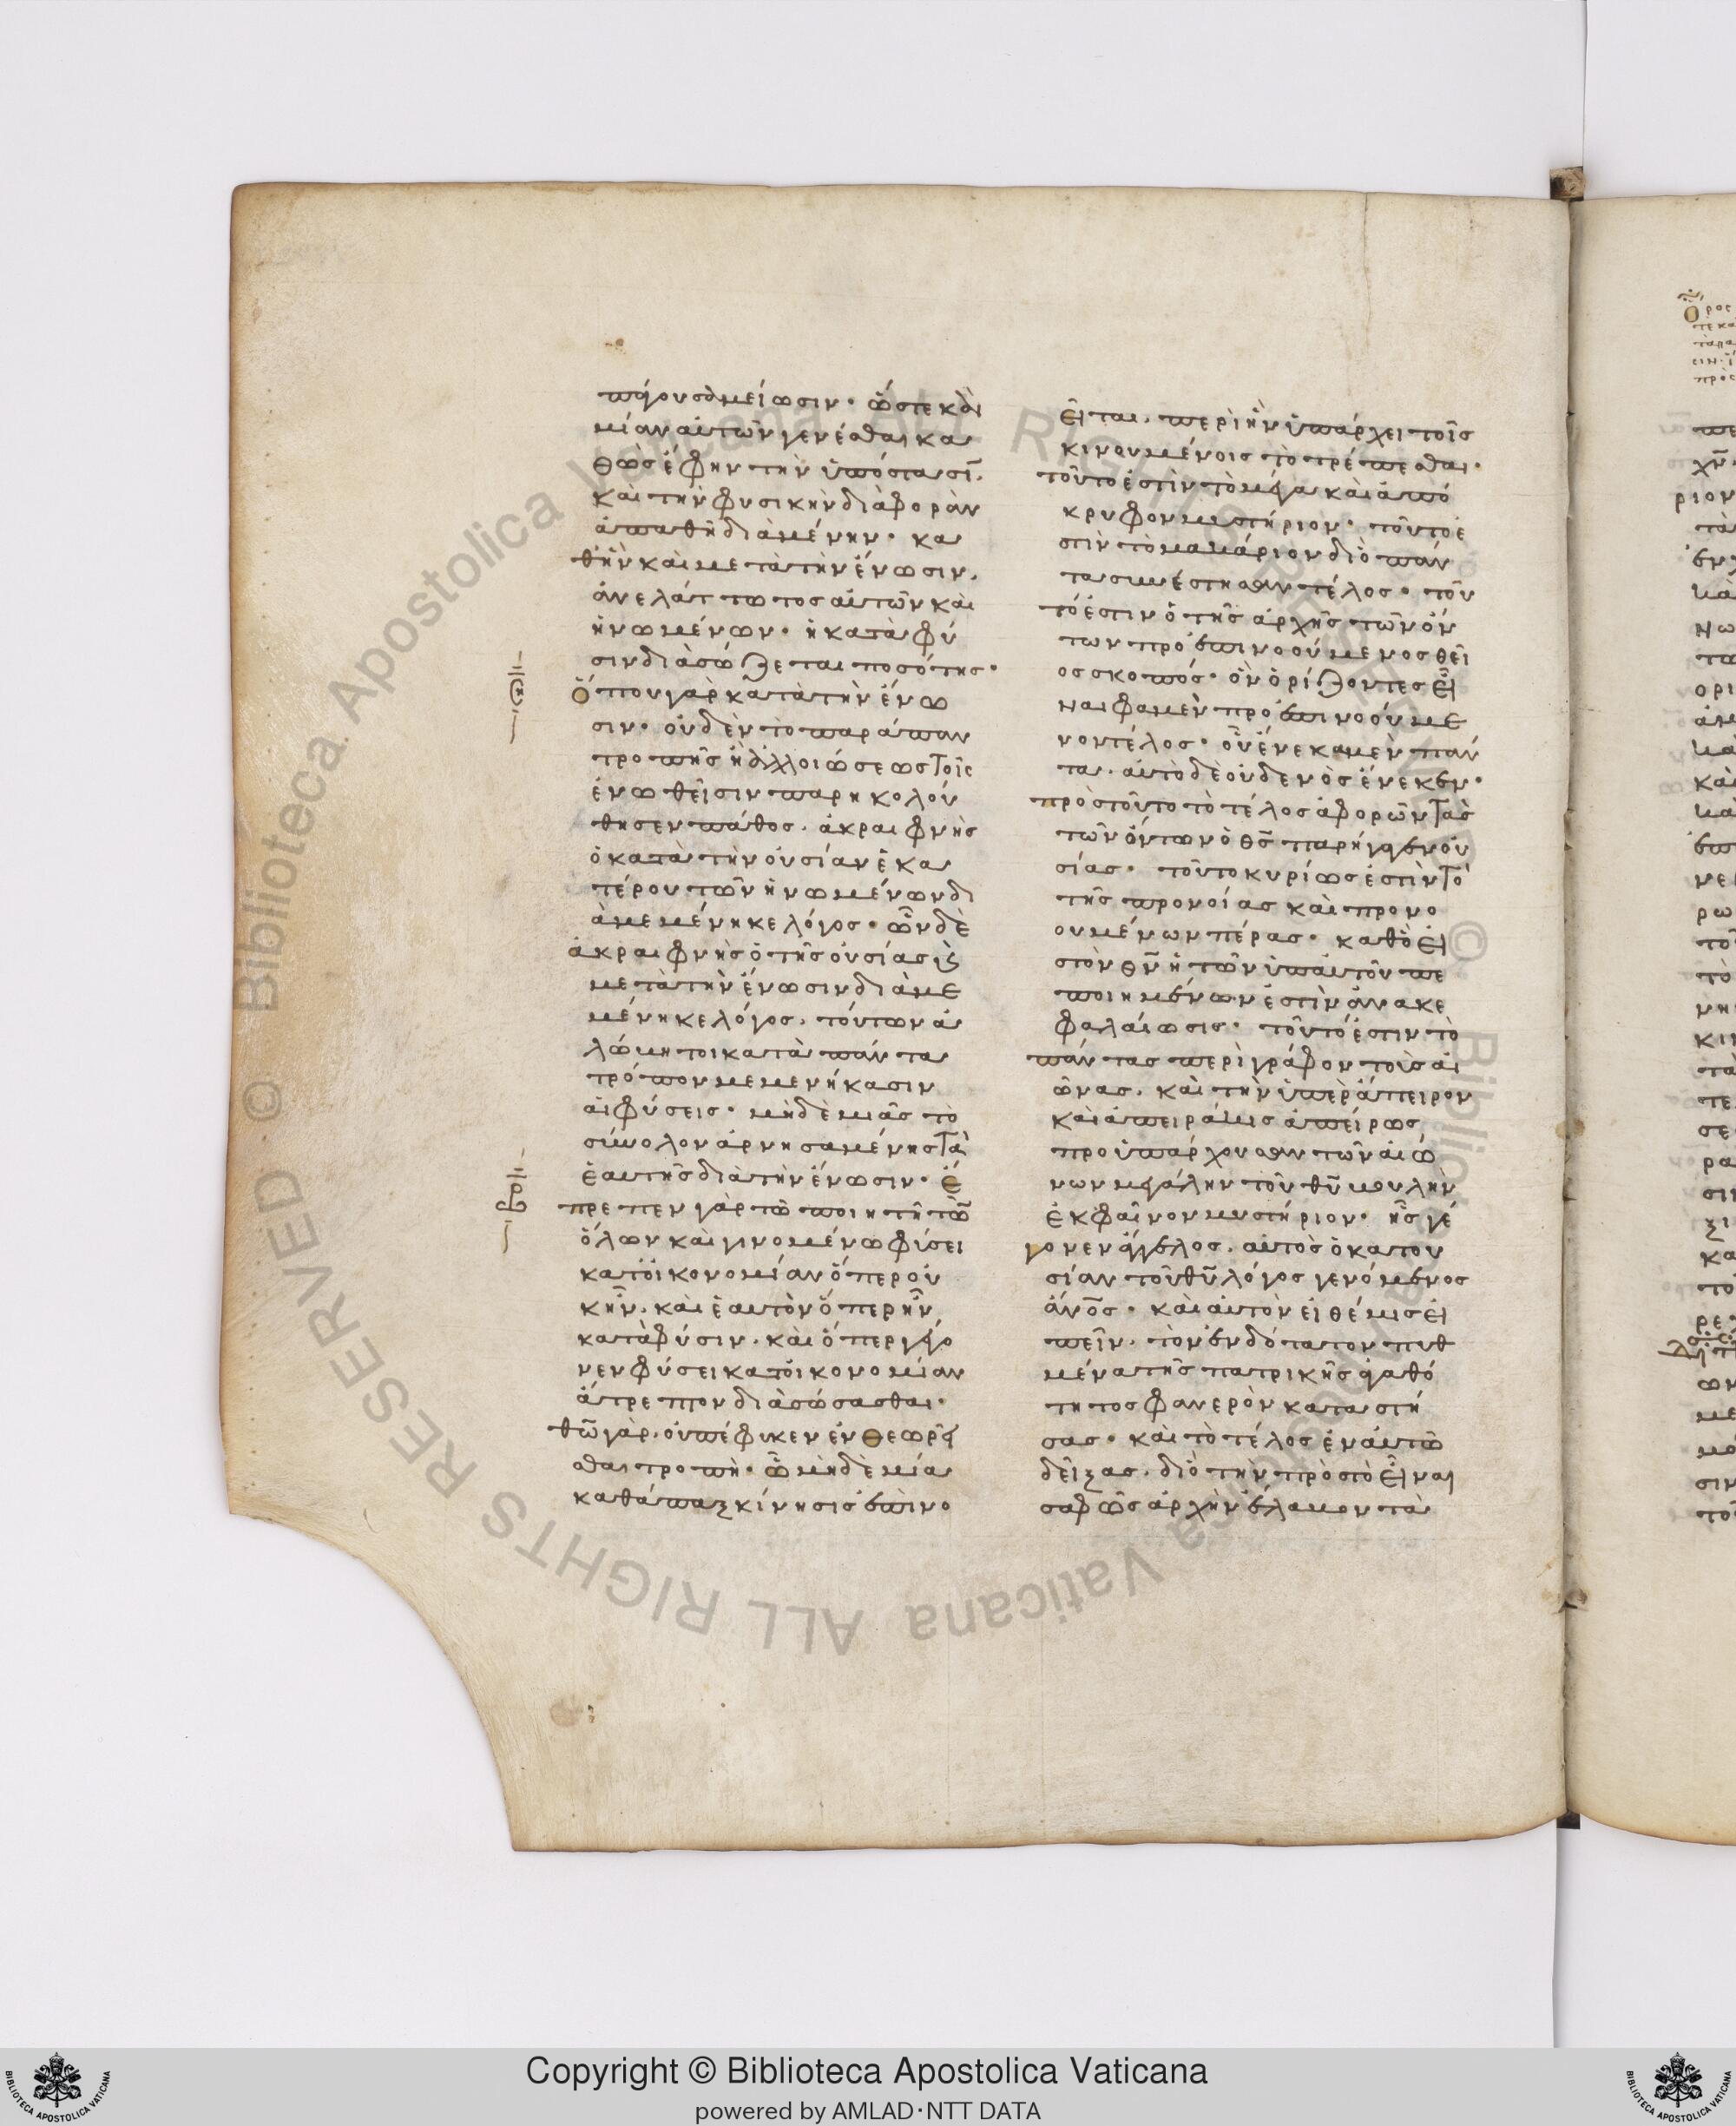 πήγουσα μείωσιν· ὥστε καὶ
μίαν αὐτῶν γενέσθαι κα
θὼς ἔφην τὴν ὑπόστασῖ,
καὶ τὴν φυσικὴν διαφορὰν
ἀπαθῆ διαμένην· κα
θ' ἣν καὶ μετὰ τὴν ἕνωσιν,
ἀνελάττωτος αὐτῶν καὶ
ἡνωμένων· ἡ κατὰ φύ
σιν διασώζεται ποσότης·
Ὅπου γὰρ κατὰ τὴν ἕνω
σιν· οὐδὲν τὸ παράπαν
τροπῆς ἢ ἀλλοιώσεως τοῖς
ἑνωθεῖσιν παρηκολού
θησεν πάθος, ἀκραιφνὴς
ὁ κατὰ τὴν οὐσίαν ἑκα
τέρου τῶν ἡνωμένων δι
αμεμένηκε λόγος· ὧν δὲ
ἀκραιφνὴς ὁ τῆς οὐσίας ϗ
μετὰ τὴν ἕνωσιν διαμε
μένηκε λόγος, τούτων ἀ
λώμητοι κατὰ πάντα
τρόπον μεμενήκασιν
αἱ φύσεις· μηδὲ μιᾶς τὸ
σύνολον ἀρνησαμένης τὰ
ἑαυτῆς διὰ τὴν ἕνωσιν· Ἔ
πρεπεν γὰρ τῶ ποιητῆ τῶ
ὅλων καὶ γινομένω φύσει
κατ' οἰκονομίαν ὅπερ οὐ
κ ἦν, καὶ ἑαυτὸν ὅπερ ἦν
κατὰ φύσιν, καὶ ὅπερ γέγο
νεν φύσει κατ' οἰκονομίαν
ἄτρεπτον διασώσασθαι·
θῶ γὰρ, οὐ πέφυκεν ἐνθεωρεῖ
σθαι τροπή· ὧ μηδὲ μία
καθάπαξ κίνησις ἐπινο
εῖται, περὶ ἣν ὑπάρχει τοῖς
κινουμένοις τὸ τρέπεσθαι·
τοῦτο ἐστὶν τὸ μέγα καὶ ἀπό
κρυφον μυστήριον· τοῦτο ἐ
στὶν τὸ μακάριον δι' ὃ πάν
τα συνέστησαν τέλος· τοῦ
τό ἐστιν ὁ τῆς ἀρχῆς τῶν ὄν
των προεπινοούμενος θεῖ
ος σκοπός· ὃν ὁρίζοντες εἶ
ναι φαμὲν προεπινοούμε
νον τέλος· οὗ ἕνεκα μὲν πάν
τα, αὐτὸ δὲ οὐδενὸς ἕνεκεν·
πρὸς τοῦτο τὸ τέλος ἀφορῶν τὰς
τῶν ὄντων ὁ θς παρήγαγεν οὐ
σίας· τοῦτο κυρίως ἐστὶν τὸ
τῆς προνοίας καὶ προνο
ουμένων πέρας· καθ' ὃ εἰ
ς τὸν θν ἡ τῶν ὑπ' αὐτοῦ πε
ποιημένων ἐστὶν ἀνακε
φαλαίωσις· τοῦτό ἐστιν τὸ
πάντας περιγράφον τοὺς αἰ
ῶνας, καὶ τὴν ὑπεράπειρον
καὶ ἀπειράκις ἀπείρως
προϋπάρχουσαν τῶν αἰώ
νων μεγάλην τοῦ θυ βουλὴν
ἐκφαῖνον μυστήριον· ἧς γέ
γονεν ἄγγελος, αὐτὸς ὁ κατ' οὐ
σίαν τοῦ θυ λόγος γενόμενος
ἄνος· καὶ αὐτὸν εἰ θέμις εἰ
πεῖν, τὸν ἐνδότατον πυθ
μένα τῆς πατρικῆς ἀγαθό
τητος φανερὸν καταστή
σας· καὶ τὸ τέλος ἐν αὐτῶ
δείξας, δι' ὃ τὴν πρὸς τὸ εἶναι
σαφῶς ἀρχὴν ἔλαβον τὰ
Copyright © Biblioteca Apostolica Vaticana
powered by AMLAD·NTT DATA